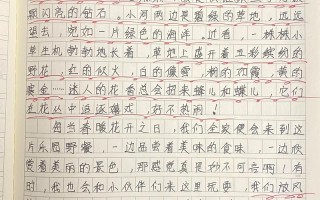 颗闪亮的钻石。小河两边是葱绿的草地，远远
望去，宛如一片绿色的海洋。过看，一株株小
草生机勃勃地长着，草地上盛开着五彩缤纷的
野花，红的似火，白的像雪，粉的如霞，黄的
黄金……迷人的花香总会招来蝶儿和蜂儿，它们
在花丛中追逐嬉戏，好不热闹！
每当春暖花开之日，我们全家便会来到这
片乐园野餐，一边品尝着美味的食味，一边欣
赏着美丽的景色，那感觉真是妙不可言啊！有
时，我也会和小伙伴们来这里玩耍，我们放风